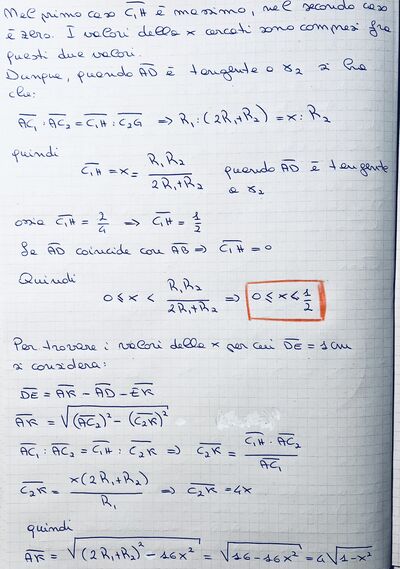 Nel primo caso C₁H è massimo, nel secondo caso
è zero. I valori della x cercati sono compresi fra
questi due valori.
Dunque, quando AD è tangente a γ₂ si ha
che:
AC₁ : AC₂ = C₁H : C₂G ⇒ R₁ : (2R₁+R₂) = x : R₂
quindi C₁H = x = R₁R₂ / (2R₁+R₂) quando AD è tangente
a γ₂
ossia C₁H = 2/4 ⇒ C₁H = 1/2
Se AD coincide con AB ⇒ C₁H = 0
Quindi
0 ≤ x < R₁R₂ / (2R₁+R₂) ⇒ 0 ≤ x < 1/2
Per trovare i valori della x per cui DE = 1 cm
si considera:
DE = AK − AD − EK
AK = √((AC₂)² − (C₂K)²)
AC₁ : AC₂ = C₁H : C₂K ⇒ C₂K = C₁H · AC₂ / AC₁
C₂K = x(2R₁+R₂) / R₁ ⇒ C₂K = 4x
quindi
AK = √((2R₁+R₂)² − 16x²) = √(16−16x²) = 4√(1−x²)